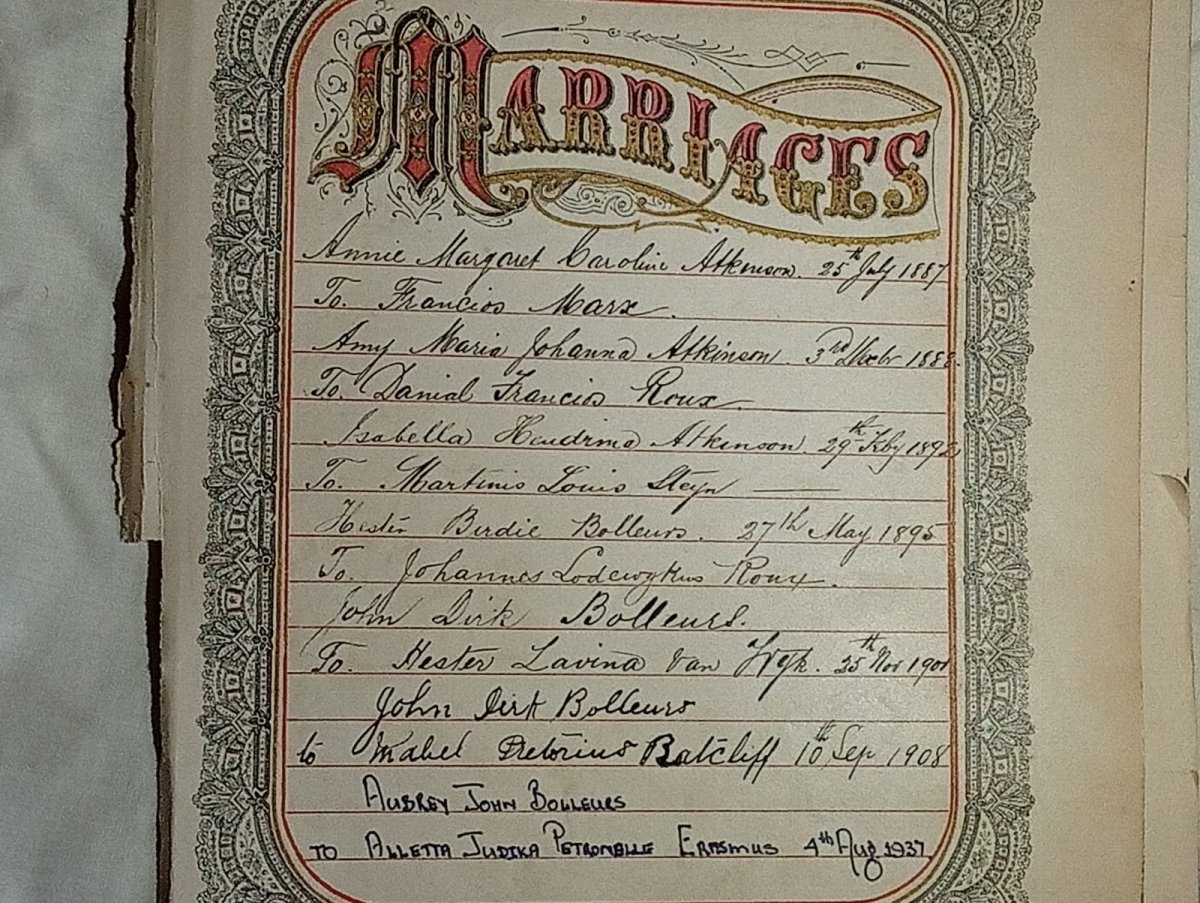 MARRIAGES
Annie Margaret Caroline Atkinson. 25th July 1887
To. Francios Marx.
Amy Maria Johanna Atkinson. 3rd Decbr 1888.
To. Danial Francios Roux.
Isabella Hendrina Atkinson. 29th Feby 1892
To. Martinis Louis Steyn
Hester Birdie Bolleurs. 27th May 1895
To. Johannes Lodewykus Roux.
John Dirk Bolleurs.
To. Hester Lavina Van Wyk. 25th Nov 1901
John Dirk Bolleurs
to Mabel Pretorius Batcliff 10th Sep 1908
AUBREY JOHN BOLLEURS
TO ALLETTA JUDIKA PETRONELLE ERASMUS 4th Aug 1937